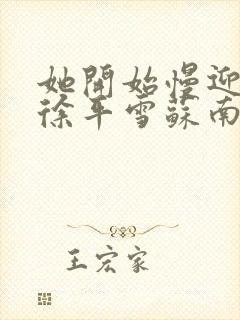 她開始慢迎
徐平雪蘇南
王宏家